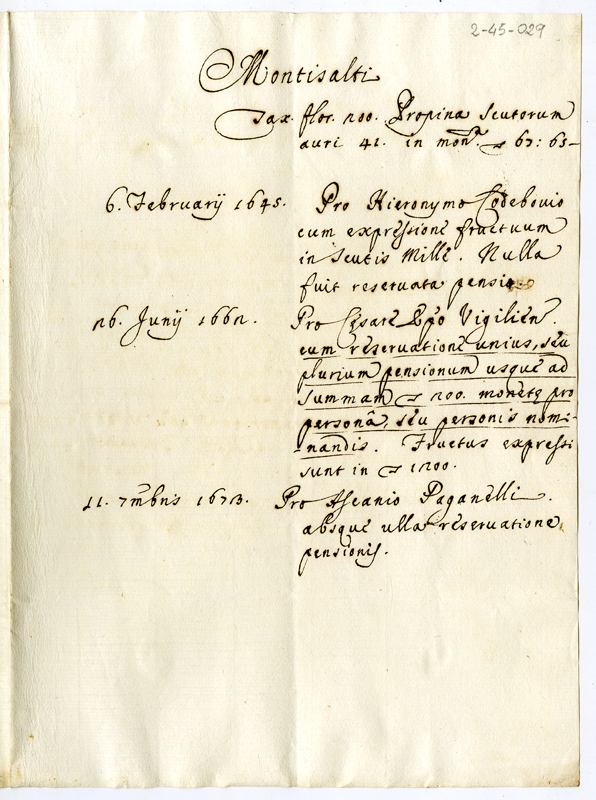 2-45-029
Montisalti
Tax. flor. 200. Propina scutorum
auri 41. in mon.ta ▽ 67: 65–
6. Februarij 1645. Pro Hieronymo Codebovio
cum expressione fructuum
in scutis Mille. Nulla
fuit reservata pensio
26. Junij 1662. Pro Cęsare Ep̄o Vigilien.
cum reservatione unius, seu
plurium pensionum usque ad
summam ▽ 200. monetę pro
personâ, seu personis nomi-
nandis. Fructus expressi
sunt in ▽ 1200.
11. 7mbris 1673. Pro Ascanio Paganelli.
absque ulla reservatione
pensionis.